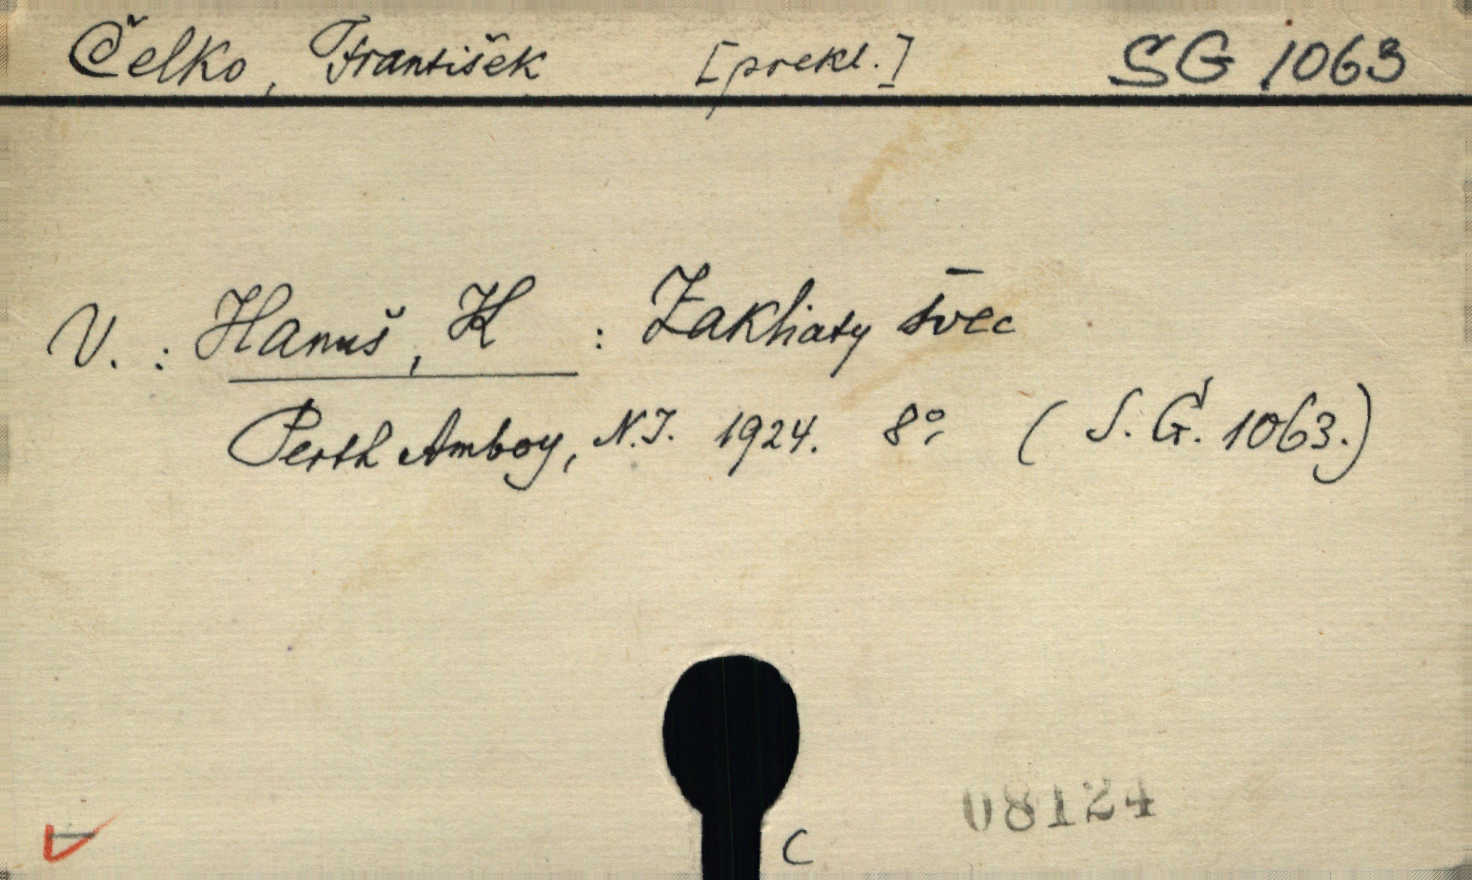 Čelko, František [prekl.] SG 1063
V.: Hanuš, K : Zakliaty švec
Perth Amboy, N.J. 1924. 8°, (S. G. 1063.)
08124
C